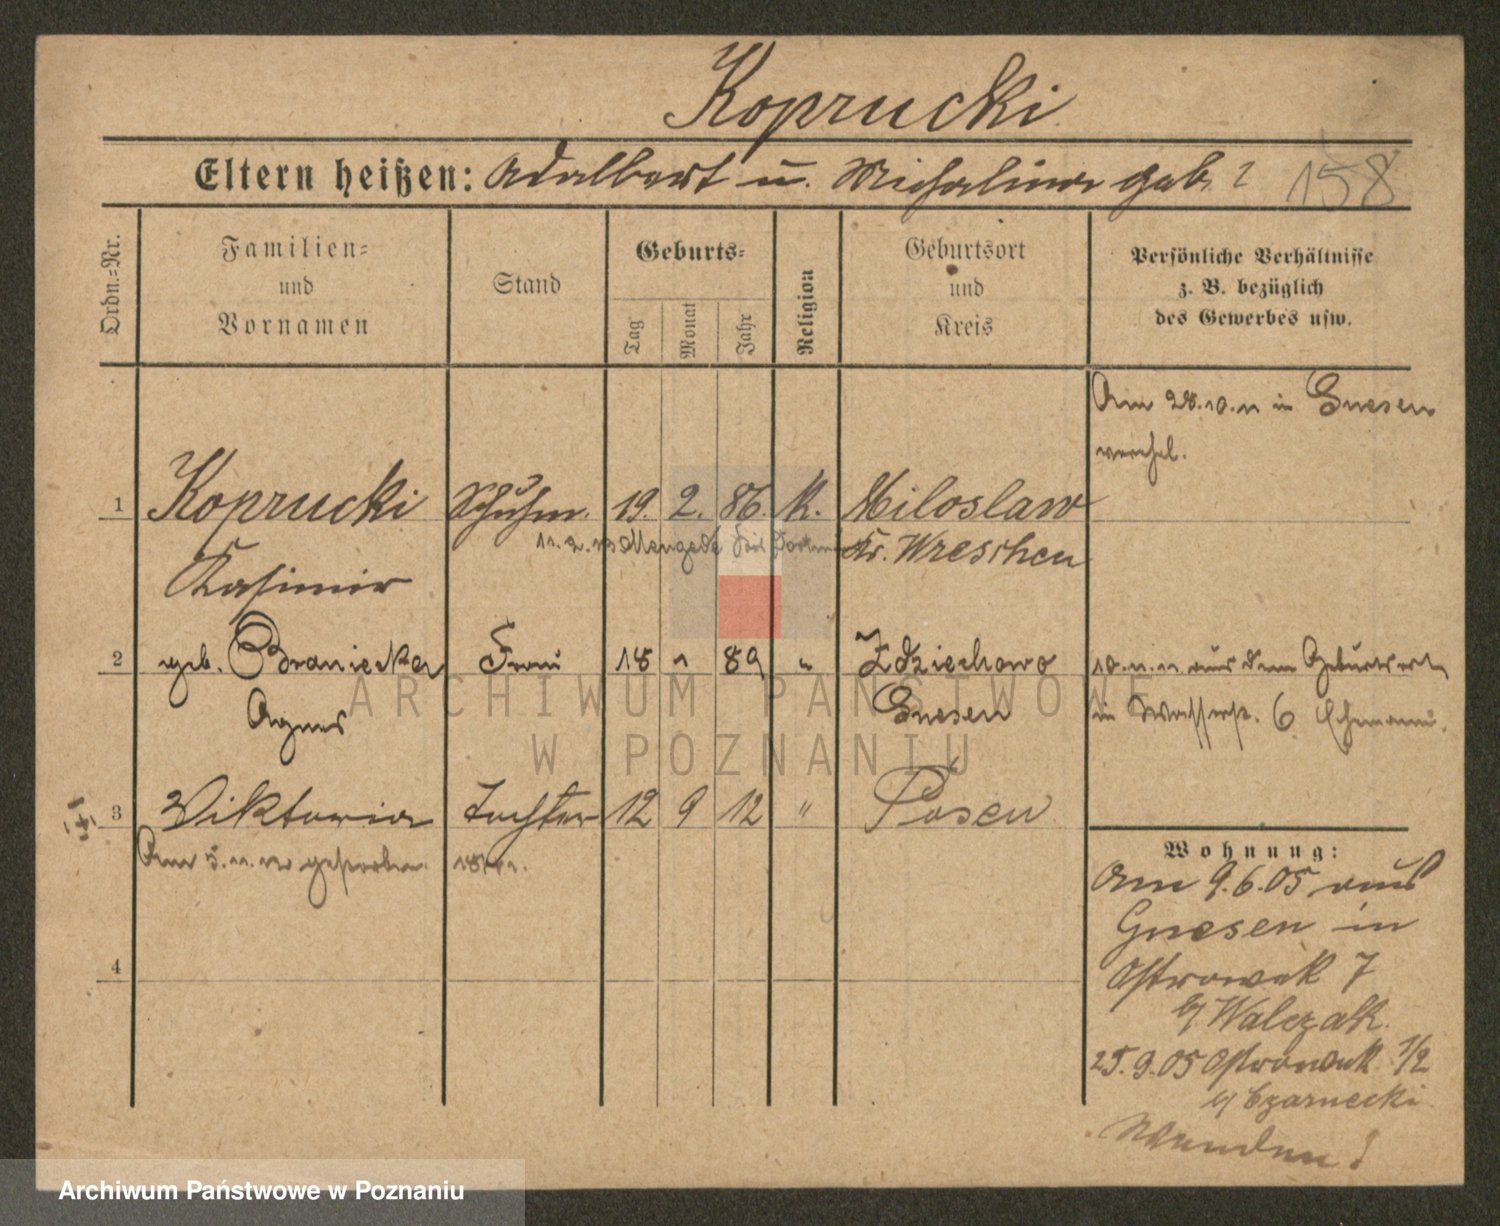 Koprucki
Eltern heißen: Adalbert u. Michalina geb. ? 158
Ordn.=Nr.
Familien=
und
Vornamen
Stand
Geburts=
Tag
Monat
Jahr
Religion
Geburtsort
und
Kreis
Persönliche Verhältnisse
z. B. bezüglich
des Gewerbes usw.
Am 28.10.11 in Gnesen
verehel.
1 Koprucki Schuhm. 19. 2. 86. K. Miloslaw
Kr. Wreschen
Kasimir
2 geb. Braniecka Frau 18 " 89 " Zdziechowo
Agnes Gnesen
10.11.11 aus dem Geburtsort
in Wasserst. 6 Ehemann.
3 Viktoria Tochter 12 9 12 " Posen
Am 5.11.12 gestorben.
4
Wohnung:
Am 9.6.05 aus
Gnesen in
Ostrowek 7
b/ Walczak
25.9.05 Ostrowek 1/2
b/ Czarnecki
Wenden!
ARCHIWUM PAŃSTWOWE
W POZNANIU
Archiwum Państwowe w Poznaniu